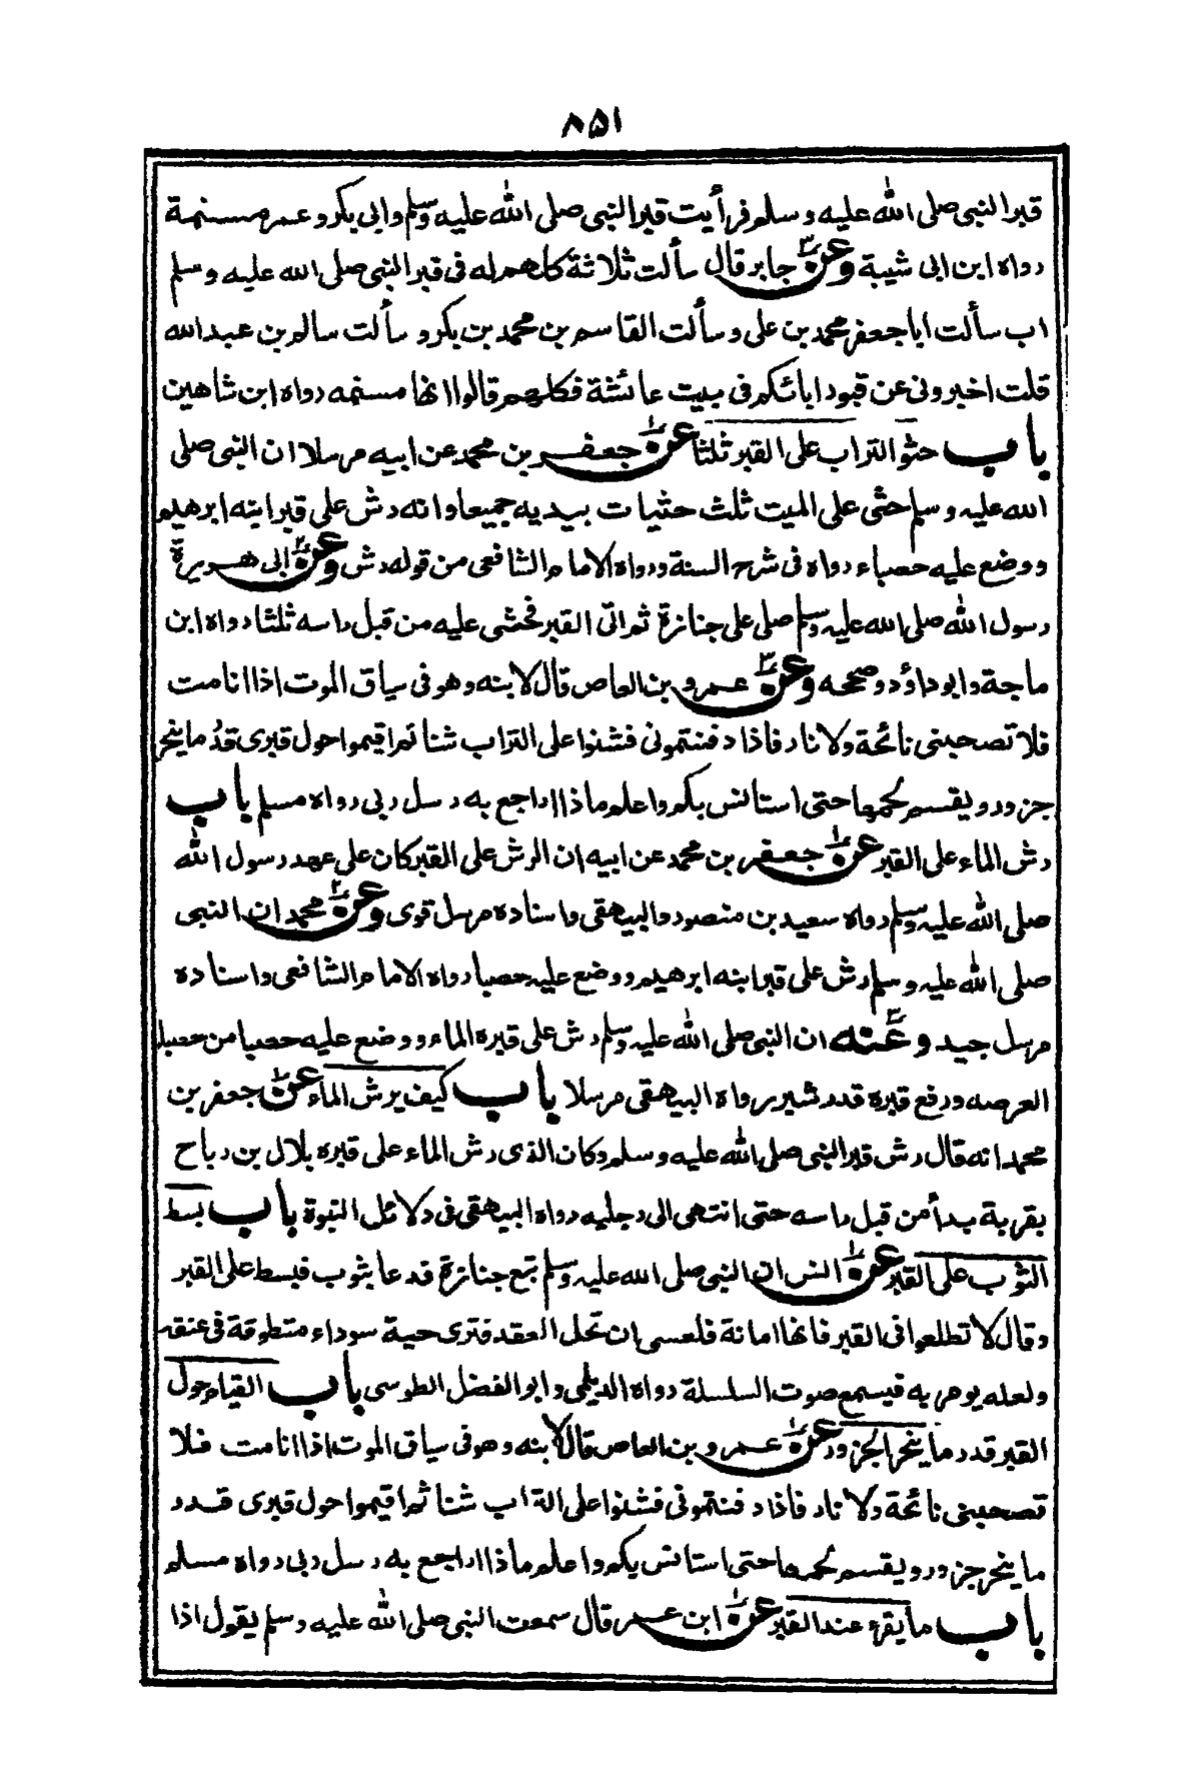 ٨۵١
قبر النبي صلى الله عليه وسلم فرأيت قبر النبي صلى الله عليه وسلم وابي بكر وعمر مسنمة
رواه ابن ابي شيبة وعن ٣ جابر قال سألت ثلاثة كلهم له في قبر النبي صلى الله عليه وسلم
اب سألت ابا جعفر محمد بن علي وسألت القاسم بن محمد بن بكر وسألت سالم بن عبد الله
قلت اخبروني عن قبور ابائكم في بيت عائشة فكلهم قالوا انها مسنمه رواه ابن شاهين
باب حثو التراب على القبر ثلثا عن ١ جعفر بن محمد عن ابيه مرسلا ان النبي صلى
الله عليه وسلم حثى على الميت ثلث حثيات بيديه جميعا وانه رش على قبر ابنه ابرهيم
ووضع عليه حصباء رواه في شرح السنة ورواه الامام الشافعي من قوله رش وعن ٢ ابي هريرة
رسول الله صلى الله عليه وسلم صلى على جنازة ثم اتى القبر فحثى عليه من قبل راسه ثلثا رواه ابن
ماجة وابو داؤد وصححه وعن ٣ عمرو بن العاص قال لابنه وهو في سياق الموت اذا انا مت
فلا تصحبني نائحة ولا نار فاذا دفنتموني فشنوا على التراب شنا ثم اقيموا حول قبري قدر ما ينحر
جزور ويقسم لحمها حتى استانس بكم واعلم ماذا اراجع به رسل ربي رواه مسلم باب
رش الماء على القبر عن ١ جعفر بن محمد عن ابيه ان الرش على القبر كان على عهد رسول الله
صلى الله عليه وسلم رواه سعيد بن منصور والبيهقي واسناده مرسل قوي وعن ٢ محمد ان النبي
صلى الله عليه وسلم رش على قبر ابنه ابرهيم ووضع عليه حصبا رواه الامام الشافعي واسناده
مرسل جيد وعنه ٣ ان النبي صلى الله عليه وسلم رش على قبره الماء ووضع عليه حصبا من حصباء
العرصه ورفع قبره قدر شبر رواه البيهقي مرسلا باب كيف يرش الماء عن ١ جعفر بن
محمد انه قال رش قبر النبي صلى الله عليه وسلم وكان الذي رش الماء على قبره بلال بن رباح
بقربة بدأ من قبل راسه حتى انتهى الى رجليه رواه البيهقي في دلائل النبوة باب بسط
الثوب على القبر عن ١ انس ان النبي صلى الله عليه وسلم تبع جنازة فدعا بثوب فبسط على القبر
وقال لا تطلعوا في القبر فانها امانة فلعسى ان تحل العقد فترى حية سوداء متطوقة في عنقه
ولعله يومر به فيسمع صوت السلسلة رواه الديلمي وابو الفضل الطوسي باب القيام حول
القبر قدر ما ينحر الجزور عن ١ عمرو بن العاص قال لابنه وهو في سياق الموت اذا انا مت فلا
تصحبني نائحة ولا نار فاذا دفنتموني فشنوا على التراب شنا ثم اقيموا حول قبري قدر
ما ينحر جزور ويقسم لحمها حتى استانس بكم واعلم ماذا اراجع به رسل ربي رواه مسلم
باب ما يقرء عند القبر عن ١ ابن عمر قال سمعت النبي صلى الله عليه وسلم يقول اذا